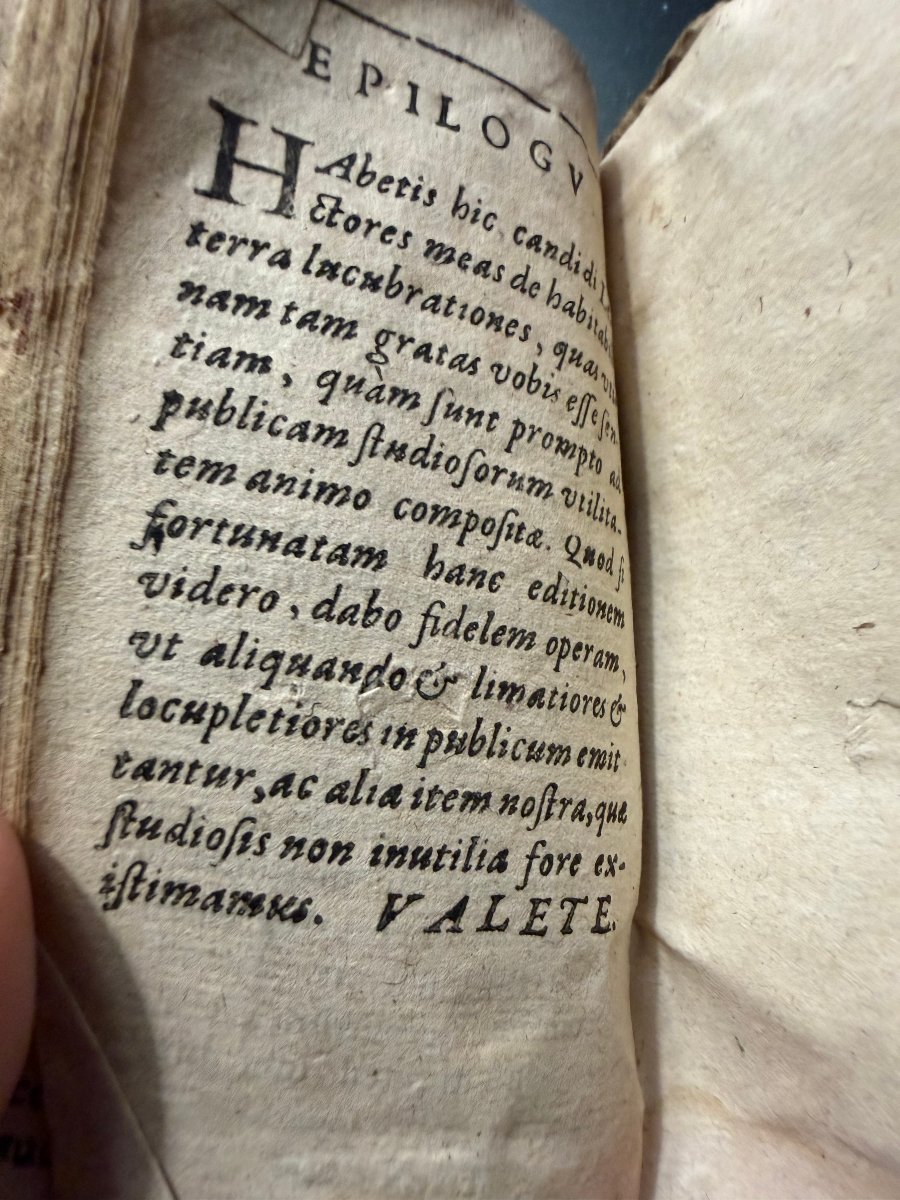 EPILOGV
HAbetis hic candidi
ctores meas de habitab
terra lucubrationes, quas vti
nam tam gratas vobis eſſe ſen-
tiam, quàm ſunt prompto ad
publicam ſtudioſorum vtilita-
tem animo compoſitæ. Quod ſi
fortunatam hanc editionem
videro, dabo fidelem operam,
vt aliquando & limatiores &
locupletiores in publicum emit
tantur, ac alia item noſtra, quæ
ſtudioſis non inutilia fore ex-
iſtimamus. VALETE.